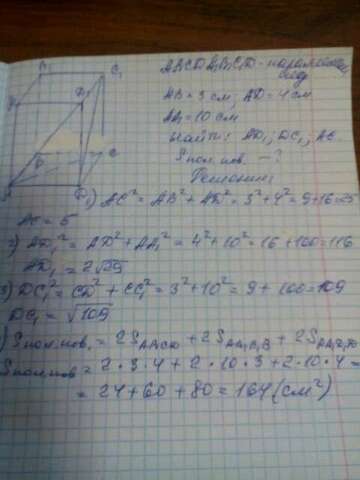 B₁ C₁
A₁ D₁
B C
A D
ABCDA₁B₁C₁D₁ - параллелепипед
AB = 3 см; AD = 4 см
AA₁ = 10 см
Найти: AD₁; DC₁; AC.
Sпол.пов. - ?
Решение:
1) AC² = AB² + AD² = 3² + 4² = 9 + 16 = 25
AC = 5
2) AD₁² = AD² + AA₁² = 4² + 10² = 16 + 100 = 116
AD₁ = 2√29
3) DC₁² = CD² + CC₁² = 3² + 10² = 9 + 100 = 109
DC₁ = √109
) Sпол.пов. = 2SABCD + 2SAA₁B₁B + 2SAA₁D₁D
Sпол.пов = 2·3·4 + 2·10·3 + 2·10·4 =
= 24 + 60 + 80 = 164 (см²)